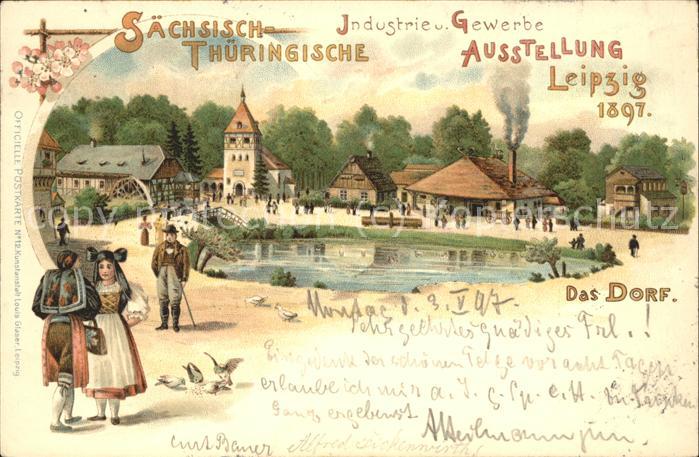 SÄCHSISCH-
THÜRINGISCHE
Industrie u. Gewerbe
AUSSTELLUNG
Leipzig
1897.
OFFICIELLE POSTKARTE No 12. Kunstanstalt Louis Glaser, Leipzig
DAS DORF.
Montag d. 3. V 97
Sehr geehrtes gnädiges Frl.!
Eingedenk der schönen Tage vor acht Tagen
erlaube ich mir a. J. g. Sp. e. H. zu
Ganz ergebenst
Curt Bauer
Alfred